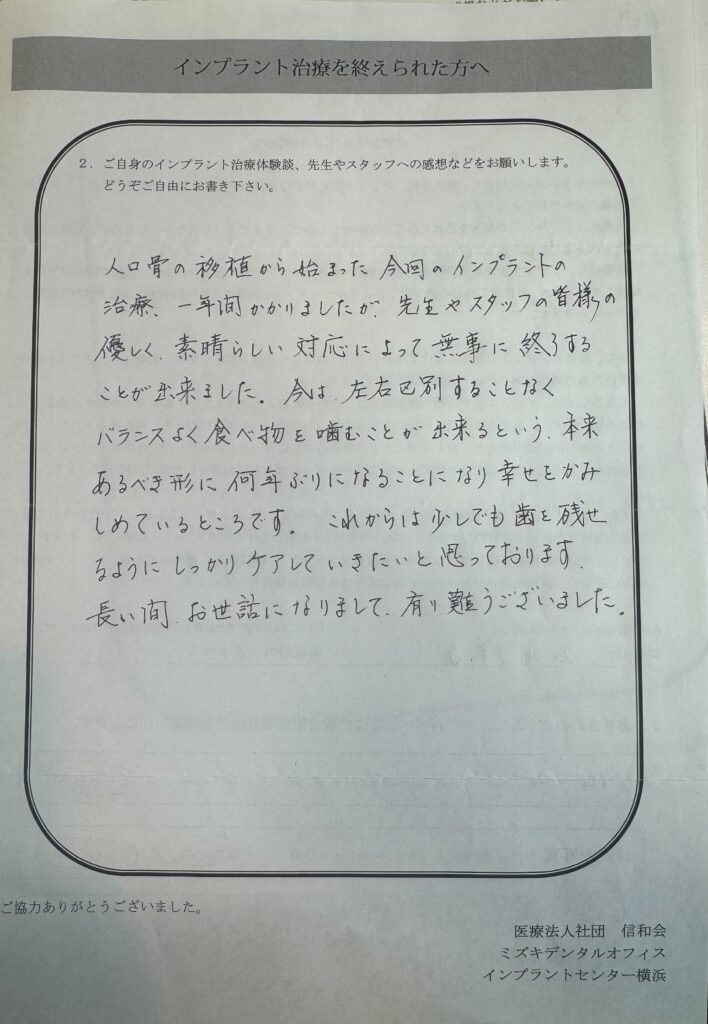 インプラント治療を終えられた方へ
２．ご自身のインプラント治療体験談、先生やスタッフへの感想などをお願いします。
どうぞご自由にお書き下さい。
人口骨の移植から始まった今回のインプラントの
治療、一年間かかりましたが、先生やスタッフの皆様の
優しく、素晴らしい対応によって無事に終了する
ことが出来ました。今は、左右区別することなく
バランスよく食べ物を噛むことが出来るという、本来
あるべき形に何年ぶりになることになり幸せをかみ
しめているところです。これからは少しでも歯を残せ
るようにしっかりケアしていきたいと思っております。
長い間、お世話になりまして、有り難うございました。
ご協力ありがとうございました。
医療法人社団　信和会
ミズキデンタルオフィス
インプラントセンター横浜